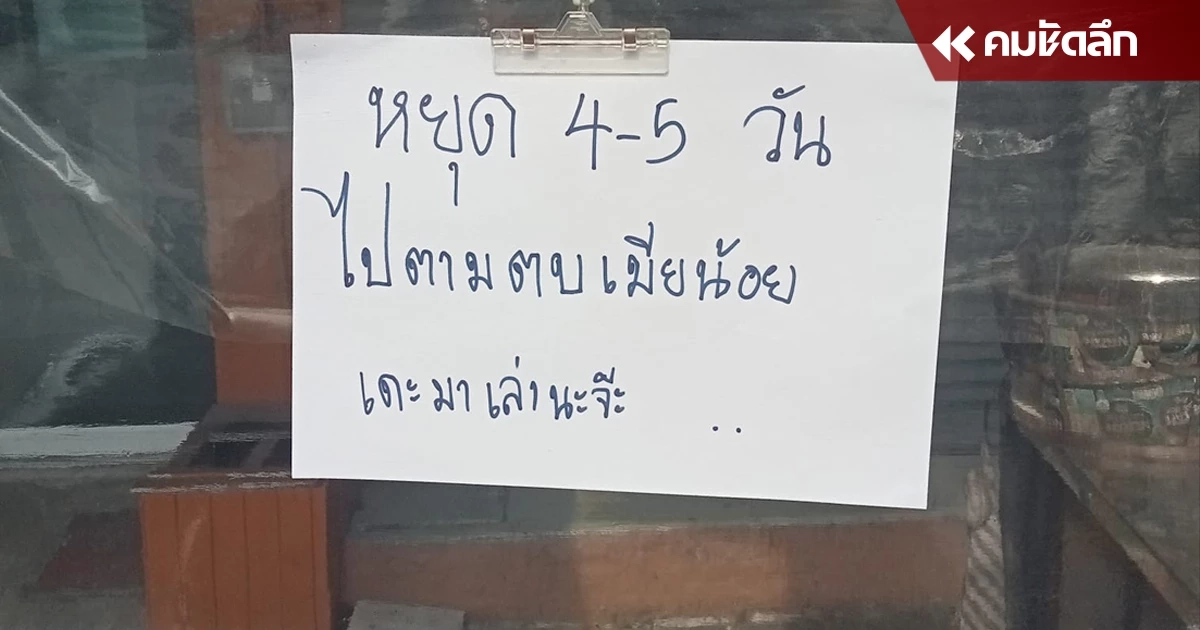 คมชัดลึก
หยุด 4-5 วัน
ไปตามตบเมียน้อย
เดะมาเล่านะจ๊ะ ..